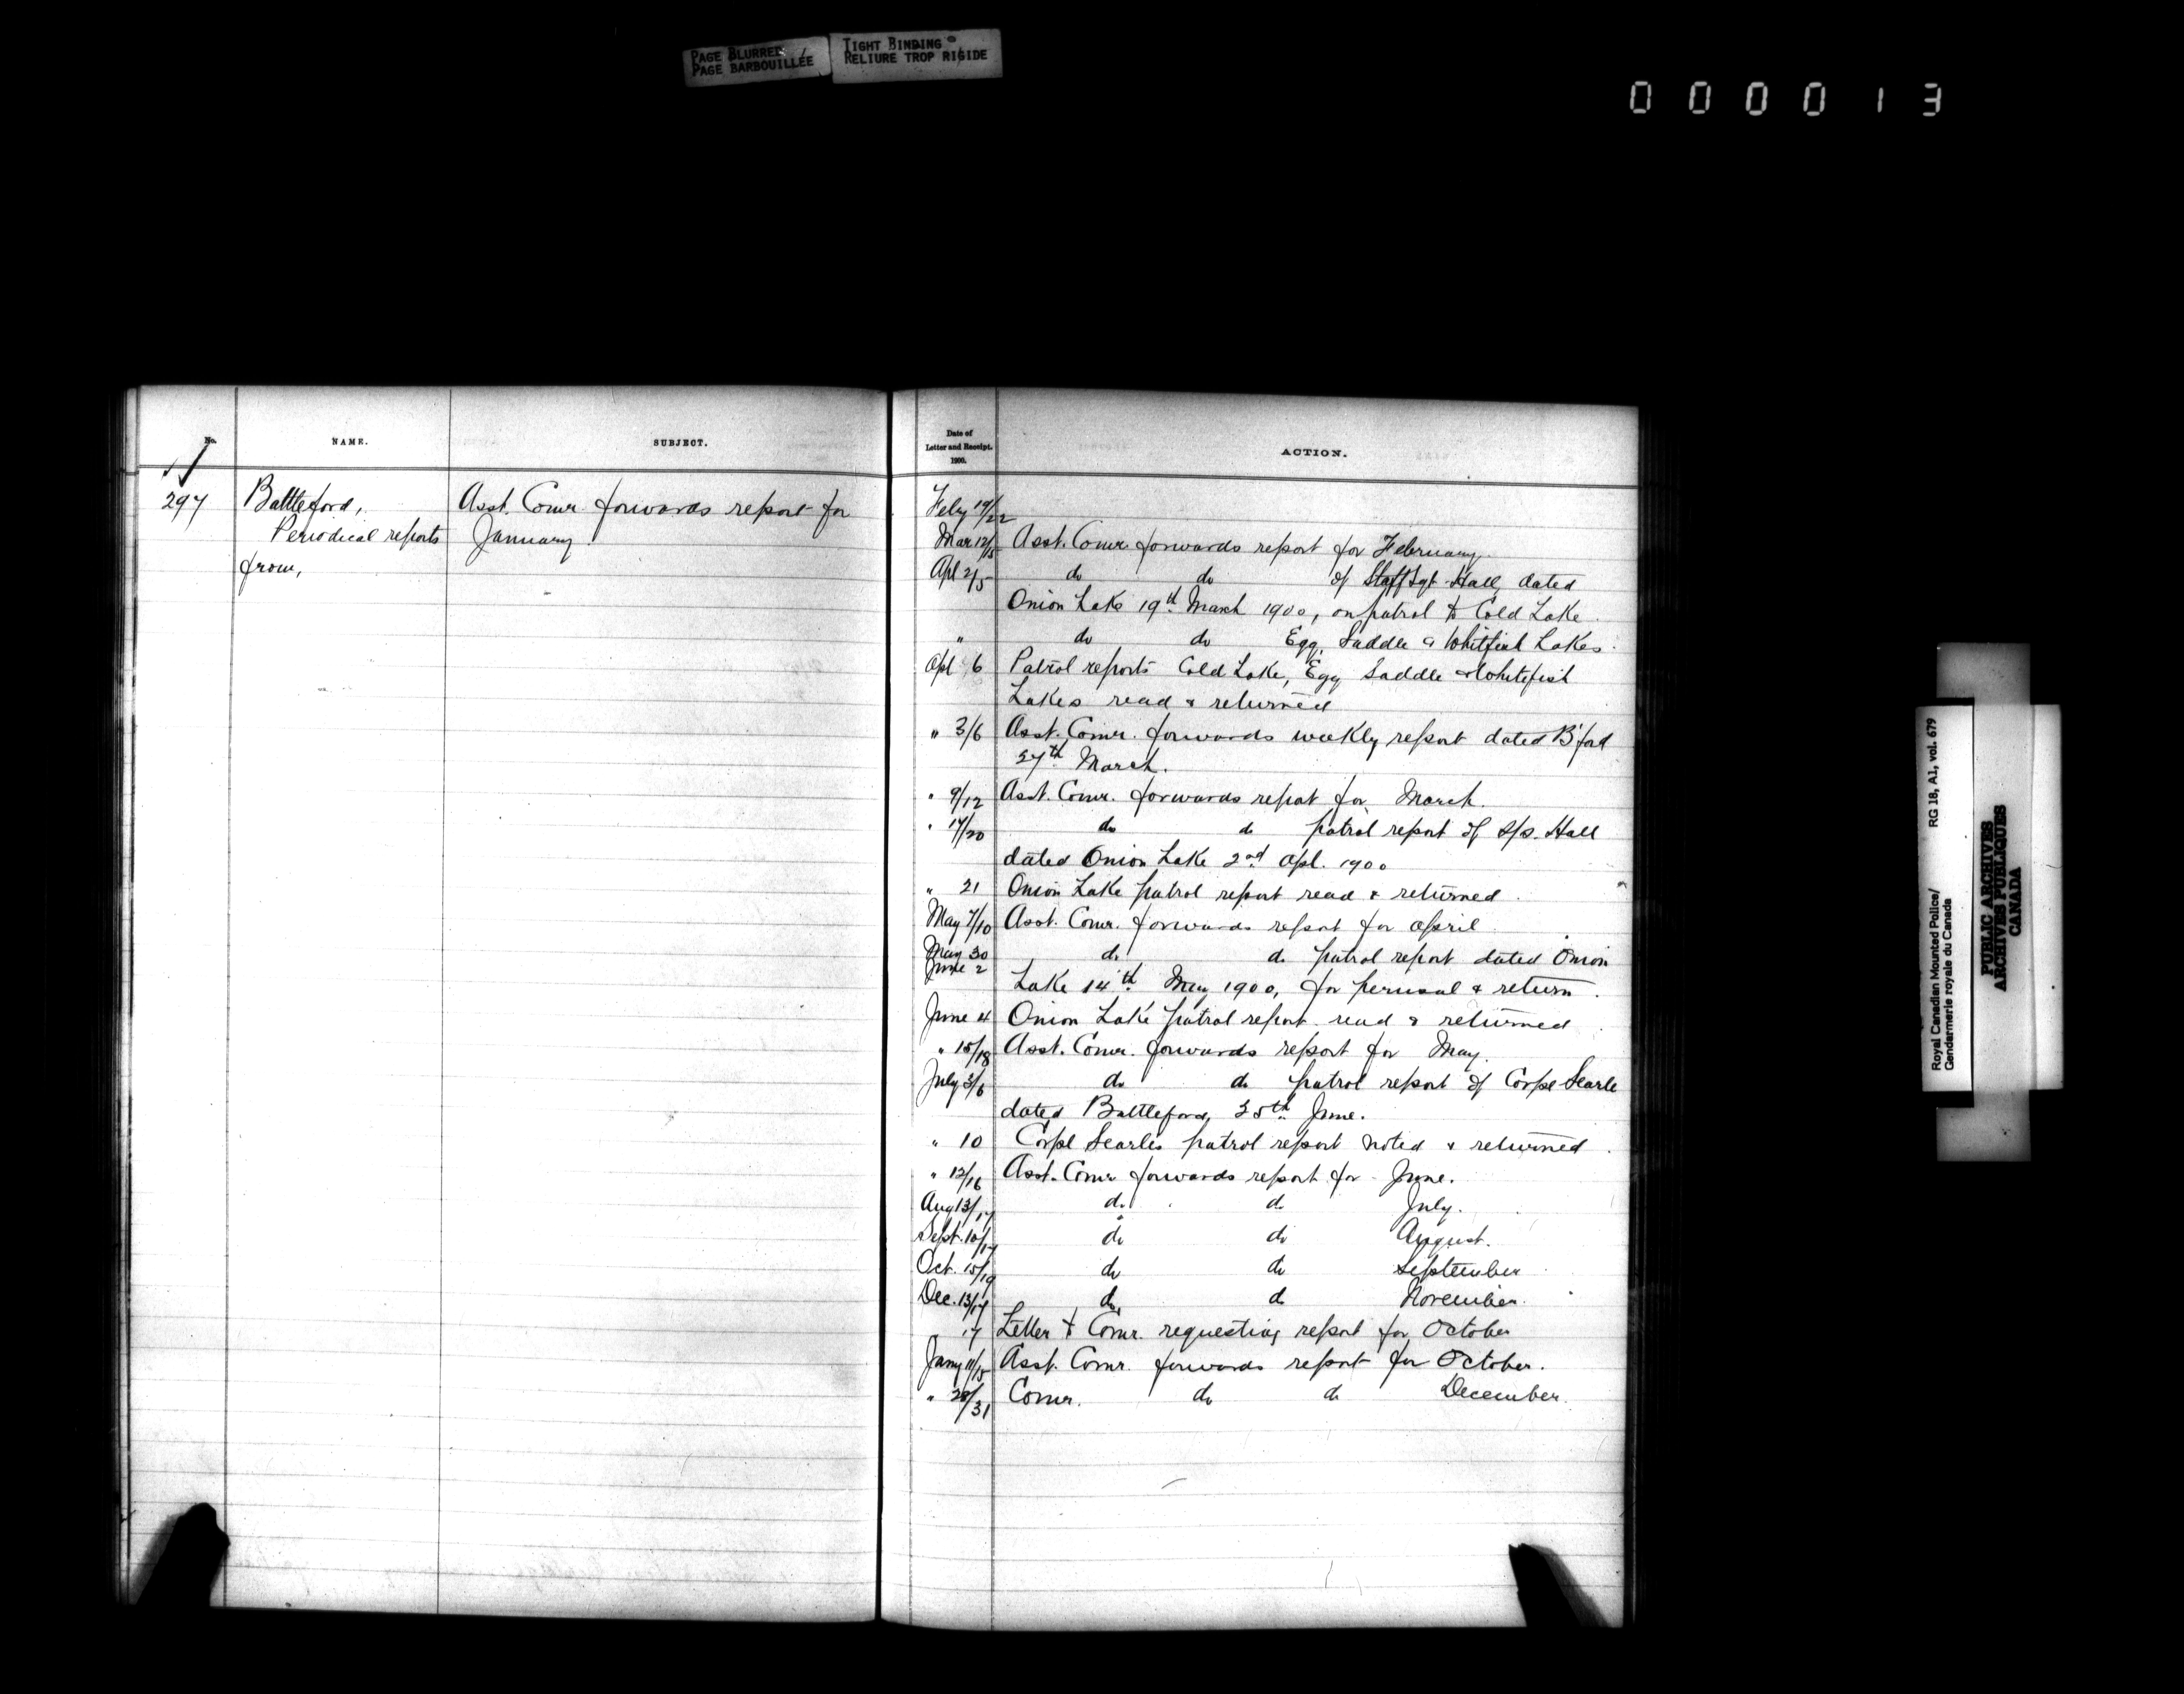 PAGE BLURRED
PAGE BARBOUILLÉE
TIGHT BINDING
RELIURE TROP RIGIDE
000013
No.
NAME.
SUBJECT.
297
Battleford,
Periodical reports
from,
Asst. Comr. forwards report for
January.
Date of
Letter and Receipt.
1900.
ACTION.
Feby 19/22
Mar 12/15 Asst. Comr. forwards report for February.
Apl 2/5 do do of Staff Sgt Hall, dated
Onion Lake 19th March 1900, on patrol to Cold Lake.
" do do Egg, Saddle & Whitfish Lakes.
Apl 6 Patrol reports Cold Lake, Egg Saddle & Whitefish
Lakes read & returned
" 3/6 Asst. Comr. forwards weekly report dated B'ford
27th March.
" 9/12 Asst. Comr. forwards report for March.
" 17/20 do do patrol report of S/S. Hall
dated Onion Lake 2nd Apl. 1900
" 21 Onion Lake patrol report read & returned.
May 7/10 Asst. Comr. forwards report for April
May 30
June 2 do do patrol report dated Onion
Lake 14th May 1900, for perusal & return.
June 4 Onion Lake patrol report read & returned
" 15/18 Asst. Comr. forwards report for May.
July 3/6 do do patrol report of Corpl Searle
dated Battleford, 25th June.
" 10 Corpl Searles patrol report noted & returned.
" 12/16 Asst. Comr forwards report for June.
Aug 13/17 do do July.
Sept. 10/14 do do August.
Oct. 15/19 do do September
Dec. 13/17 do do November.
17 Letter to Comr. requesting report for October
Jany 11/15 Asst. Comr. forwards report for October.
" 28/31 Comr. do do December.
Royal Canadian Mounted Police/
Gendarmerie royale du Canada
RG 18, A1, vol. 679
PUBLIC ARCHIVES
ARCHIVES PUBLIQUES
CANADA